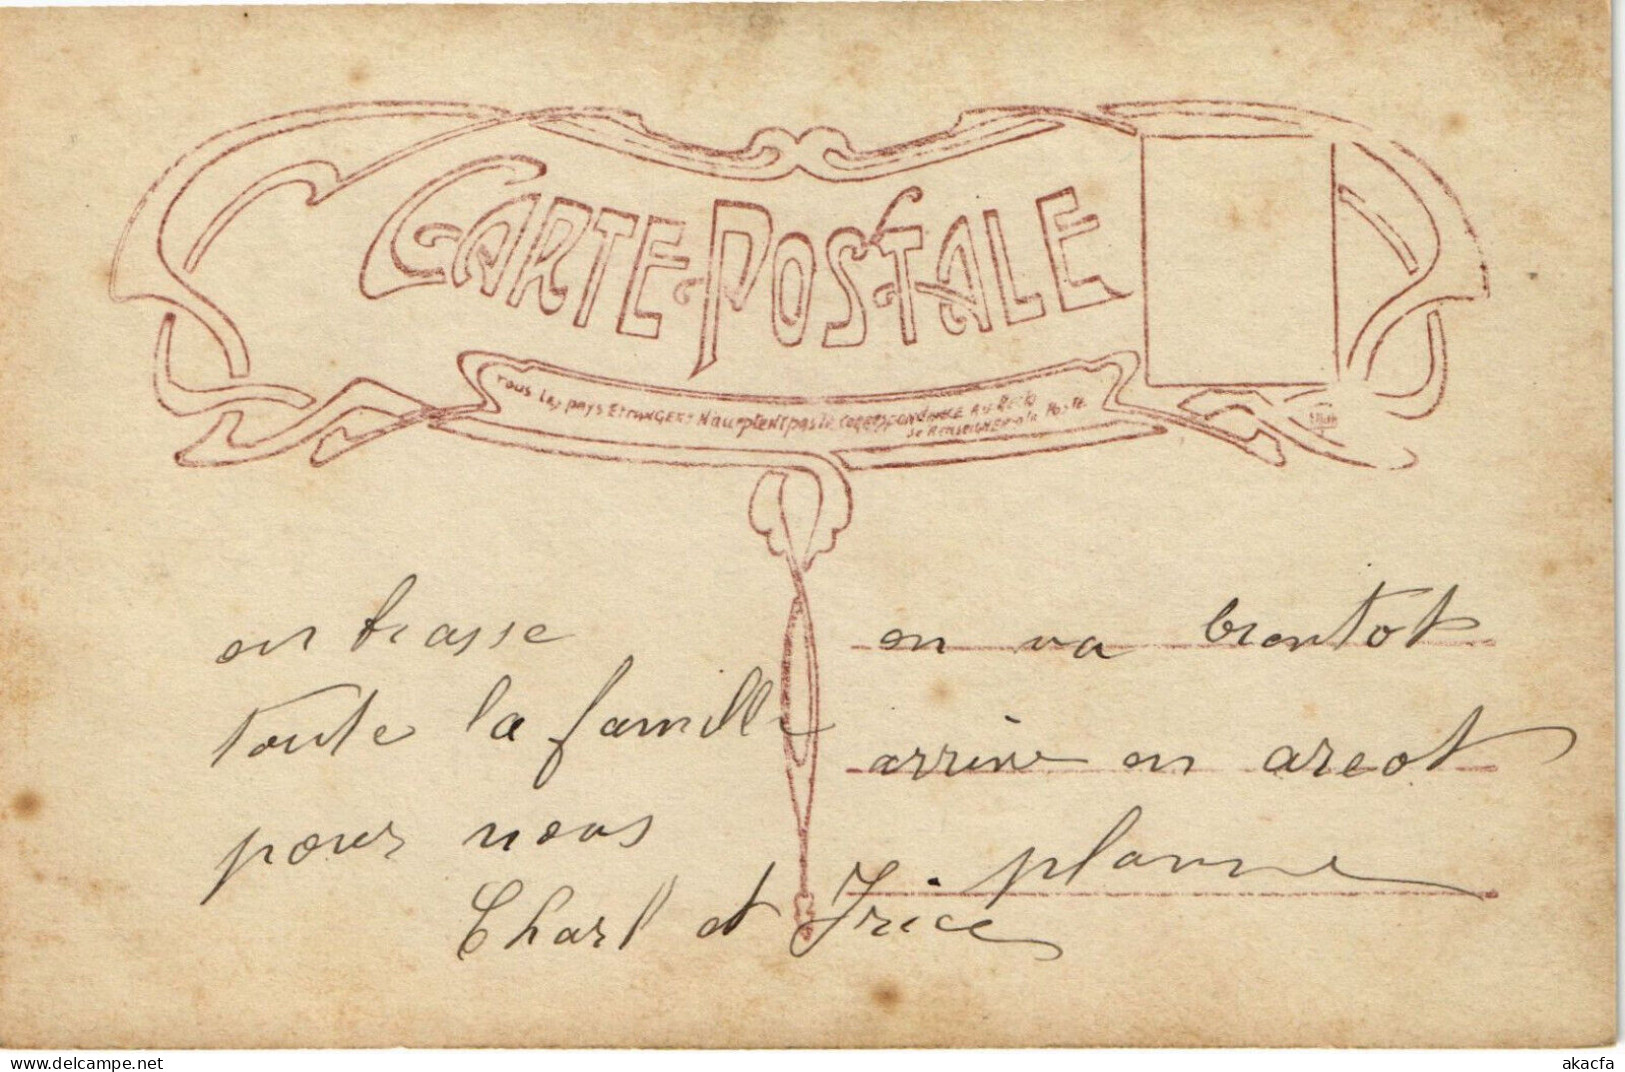 CARTE POSTALE
TOUS LES PAYS ETRANGERS N'acceptent pas la CORRESPONDANCE AU Recto
Se RENSEIGNER à la POSTE
en brasse
toute la famille
pour nous
Charl et Irice
en va bientot
arrive en arcot
planne
akacfa